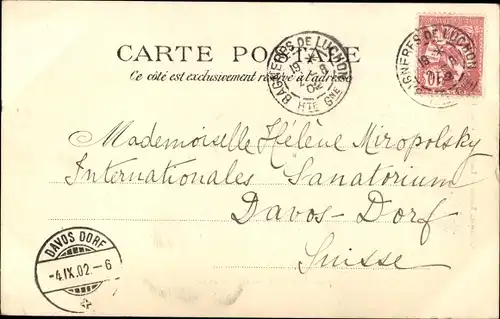 CARTE POSTALE
Ce côté est exclusivement réservé à l'adresse
BAGNÈRES DE LUCHON
HTE GNE
BAGNÈRES DE LUCHON
10
Mademoiselle Hélène Miropolsky
Internationales Sanatorium
Davos-Dorf
Suisse
DAVOS DORF
-4.IX.02-6